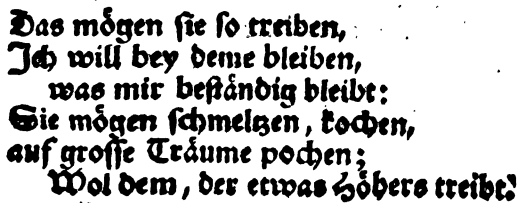 Das mögen sie so treiben,
Ich will bey deme bleiben,
was mir beständig bleibt:
Sie mögen schmeltzen, kochen,
auf grosse Träume pochen;
Wol dem, der etwas Höhers treibt.